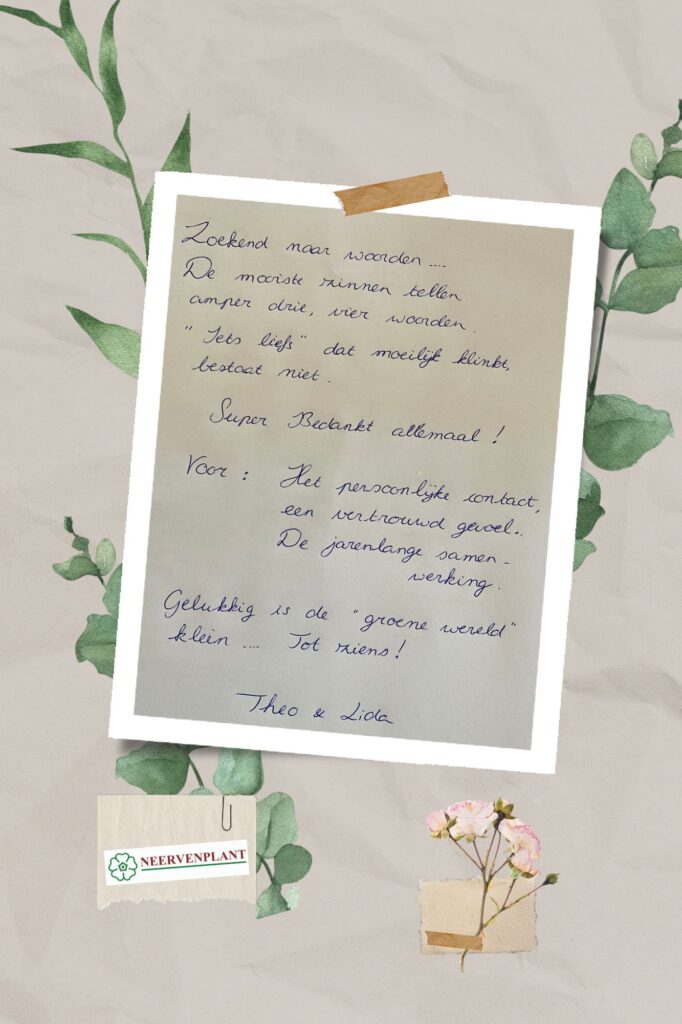 Zoekend naar woorden....
De mooiste zinnen tellen
amper drie, vier woorden.
"Iets liefs" dat moeilijk klinkt,
bestaat niet.
Super Bedankt allemaal!
Voor: Het persoonlijke contact,
een vertrouwd gevoel..
De jarenlange samen-
werking.
Gelukkig is de "groene wereld"
klein.... Tot ziens!
Theo & Lida
NEERVENPLANT